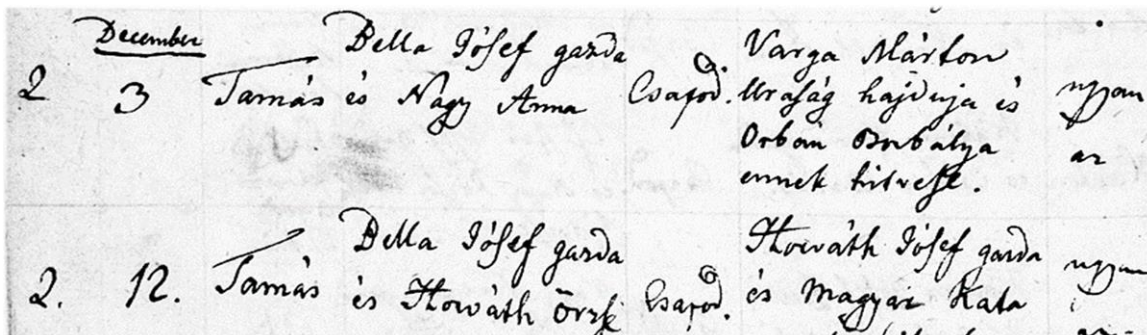 December
2 3 Tamás Bella Jósef gazda és Nagy Anna Csapod. Varga Márton Uraság hajduja és Orbán Borbálya ennek hitvese. ugyan az
2. 12. Tamás Bella Jósef gazda és Horváth Örzse Csapod. Horváth Jósef gazda és Magyar Kata ugyan